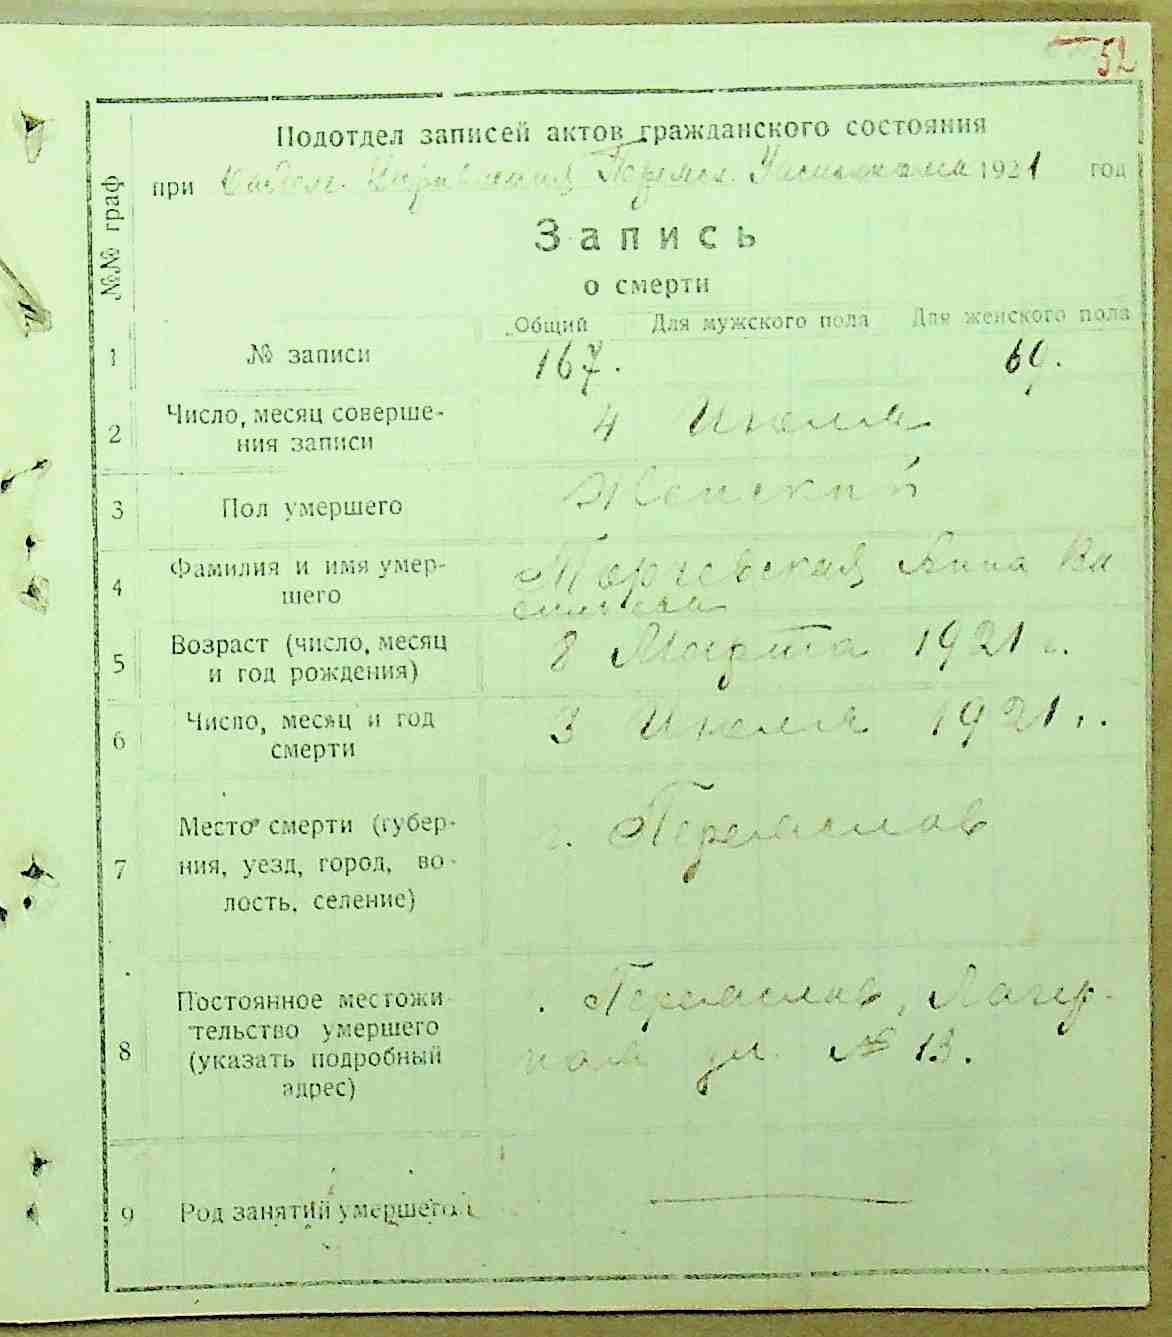 52
Подотдел записей актов гражданского состояния
при Отдел. Управления Переясл. Уисполкома 1921 год
№№ граф
Запись
о смерти
Общий Для мужского пола Для женского пола
1 № записи 167. 69.
2 Число, месяц соверше-
ния записи 4 Июля
3 Пол умершего Женский
4 Фамилия и имя умер-
шего Анна
5 Возраст (число, месяц
и год рождения) 8 Марта 1921 г.
6 Число, месяц и год
смерти 3 Июля 1921 г.
7 Место смерти (губер-
ния, уезд, город, во-
лость, селение) г. Переяслав
8 Постоянное местожи-
тельство умершего
(указать подробный
адрес) г. Переяслав, Лагер-
ная ул. № 13.
9 Род занятий умершего